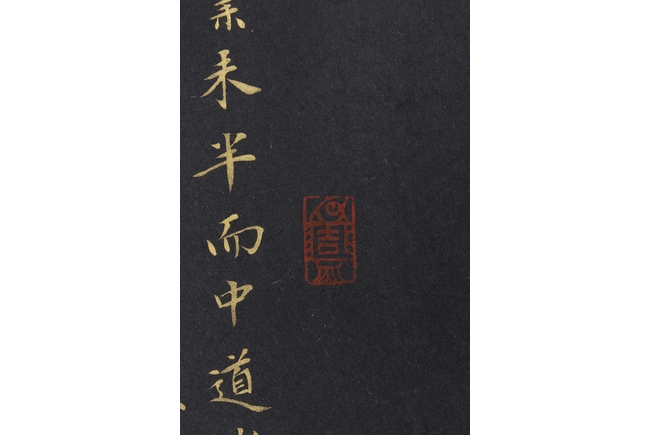 業未半而中道